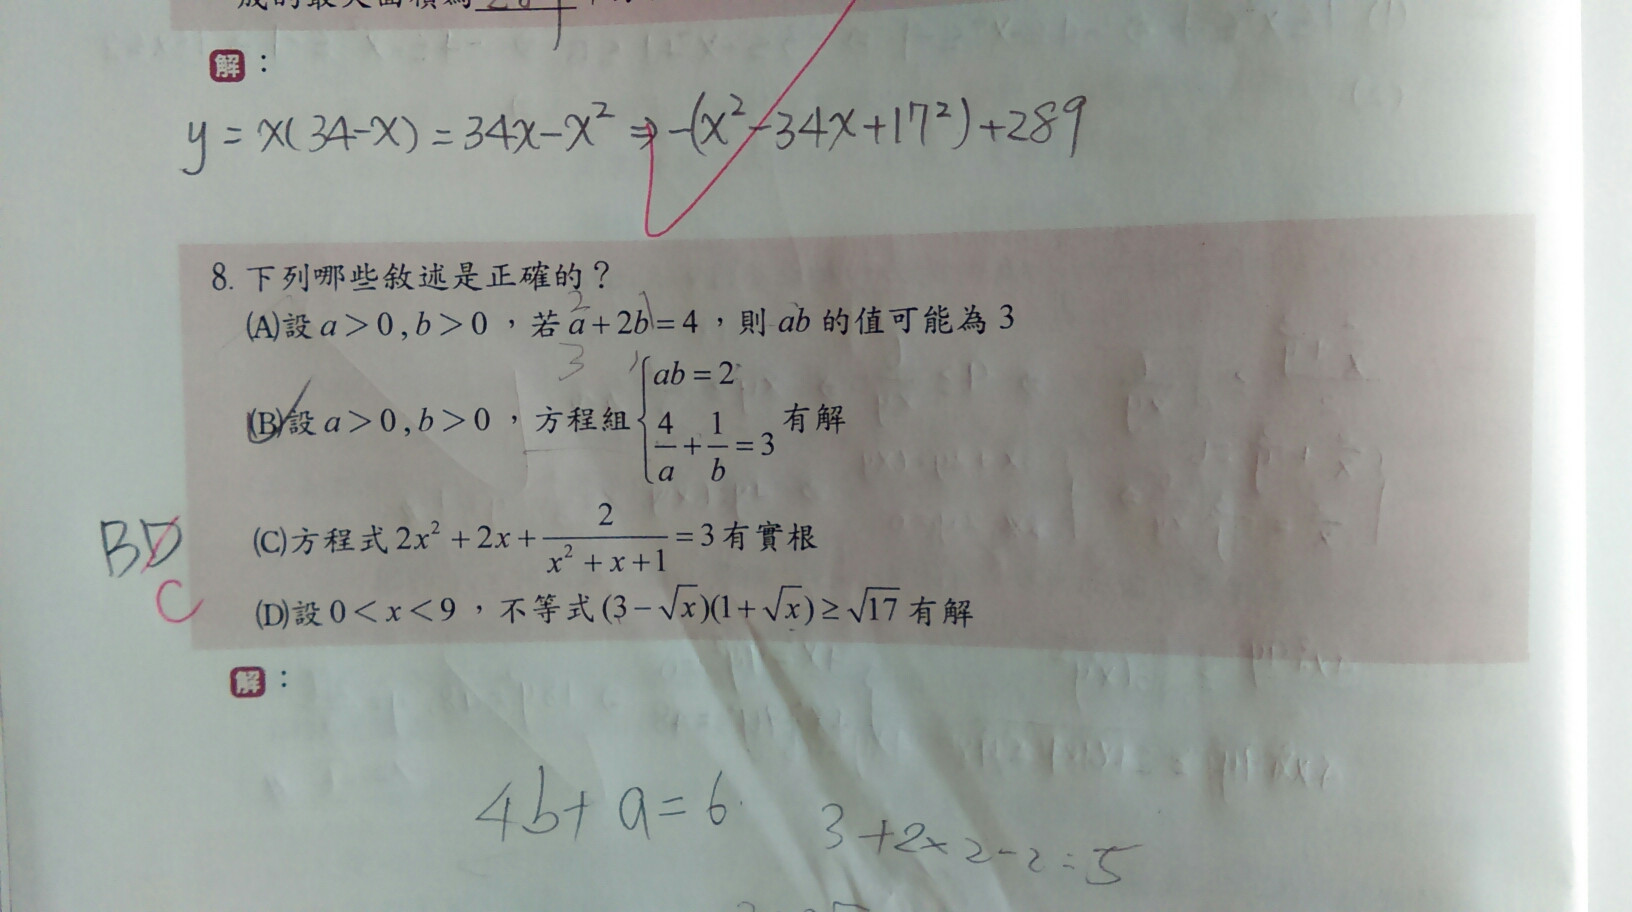 成的最大面積為 289
解：
y = x(34-x) = 34x-x² ⇒ -(x²-34x+17²)+289
8. 下列哪些敘述是正確的？
(A)設 a＞0, b＞0，若 a+2b=4，則 ab 的值可能為 3
2 1
3 1
(B)設 a＞0, b＞0，方程組 { ab=2, 4/a + 1/b = 3 有解
(C)方程式 2x² + 2x + 2/(x² + x + 1) = 3 有實根
BD
C
(D)設 0＜x＜9，不等式 (3-√x)(1+√x) ≥ √17 有解
解：
4b+a=6
3+2×2-2=5